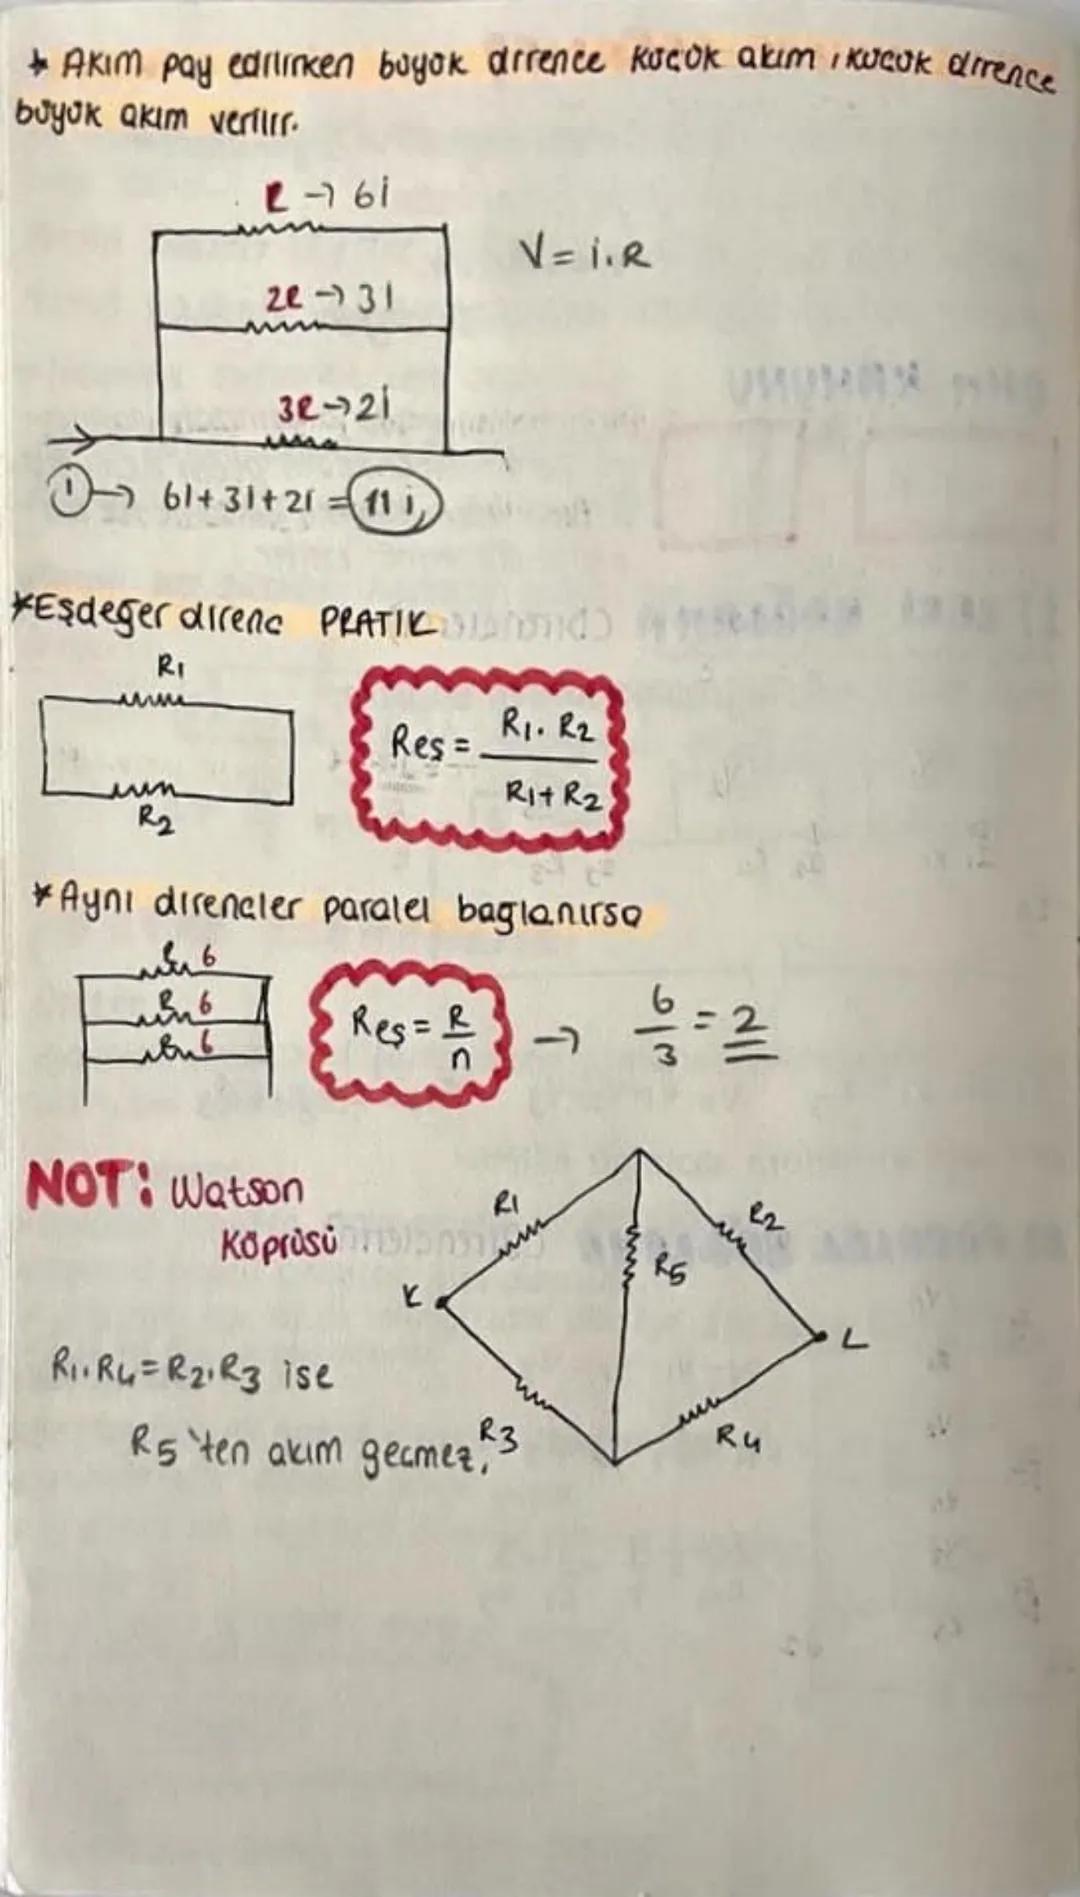 * Akım pay edilirken büyük dirence küçük akım, küçük dirence
büyük akım verilir.
R → 6i
V = i.R
2R → 3i
3R → 2i
i → 6i + 3i + 2i = 11i
*Eşdeğer direnc PRATİK
R1
Reş = R1.R2 / R1+R2
R2
*Aynı dirençler paralel bağlanırsa
R 6
R 6
R 6
Reş = R/n → 6/3 = 2
NOT: Watson
Köprüsü
R1
R2
R5
K
L
R1.R4 = R2.R3 ise
R3
R4
R5'ten akım geçmez.